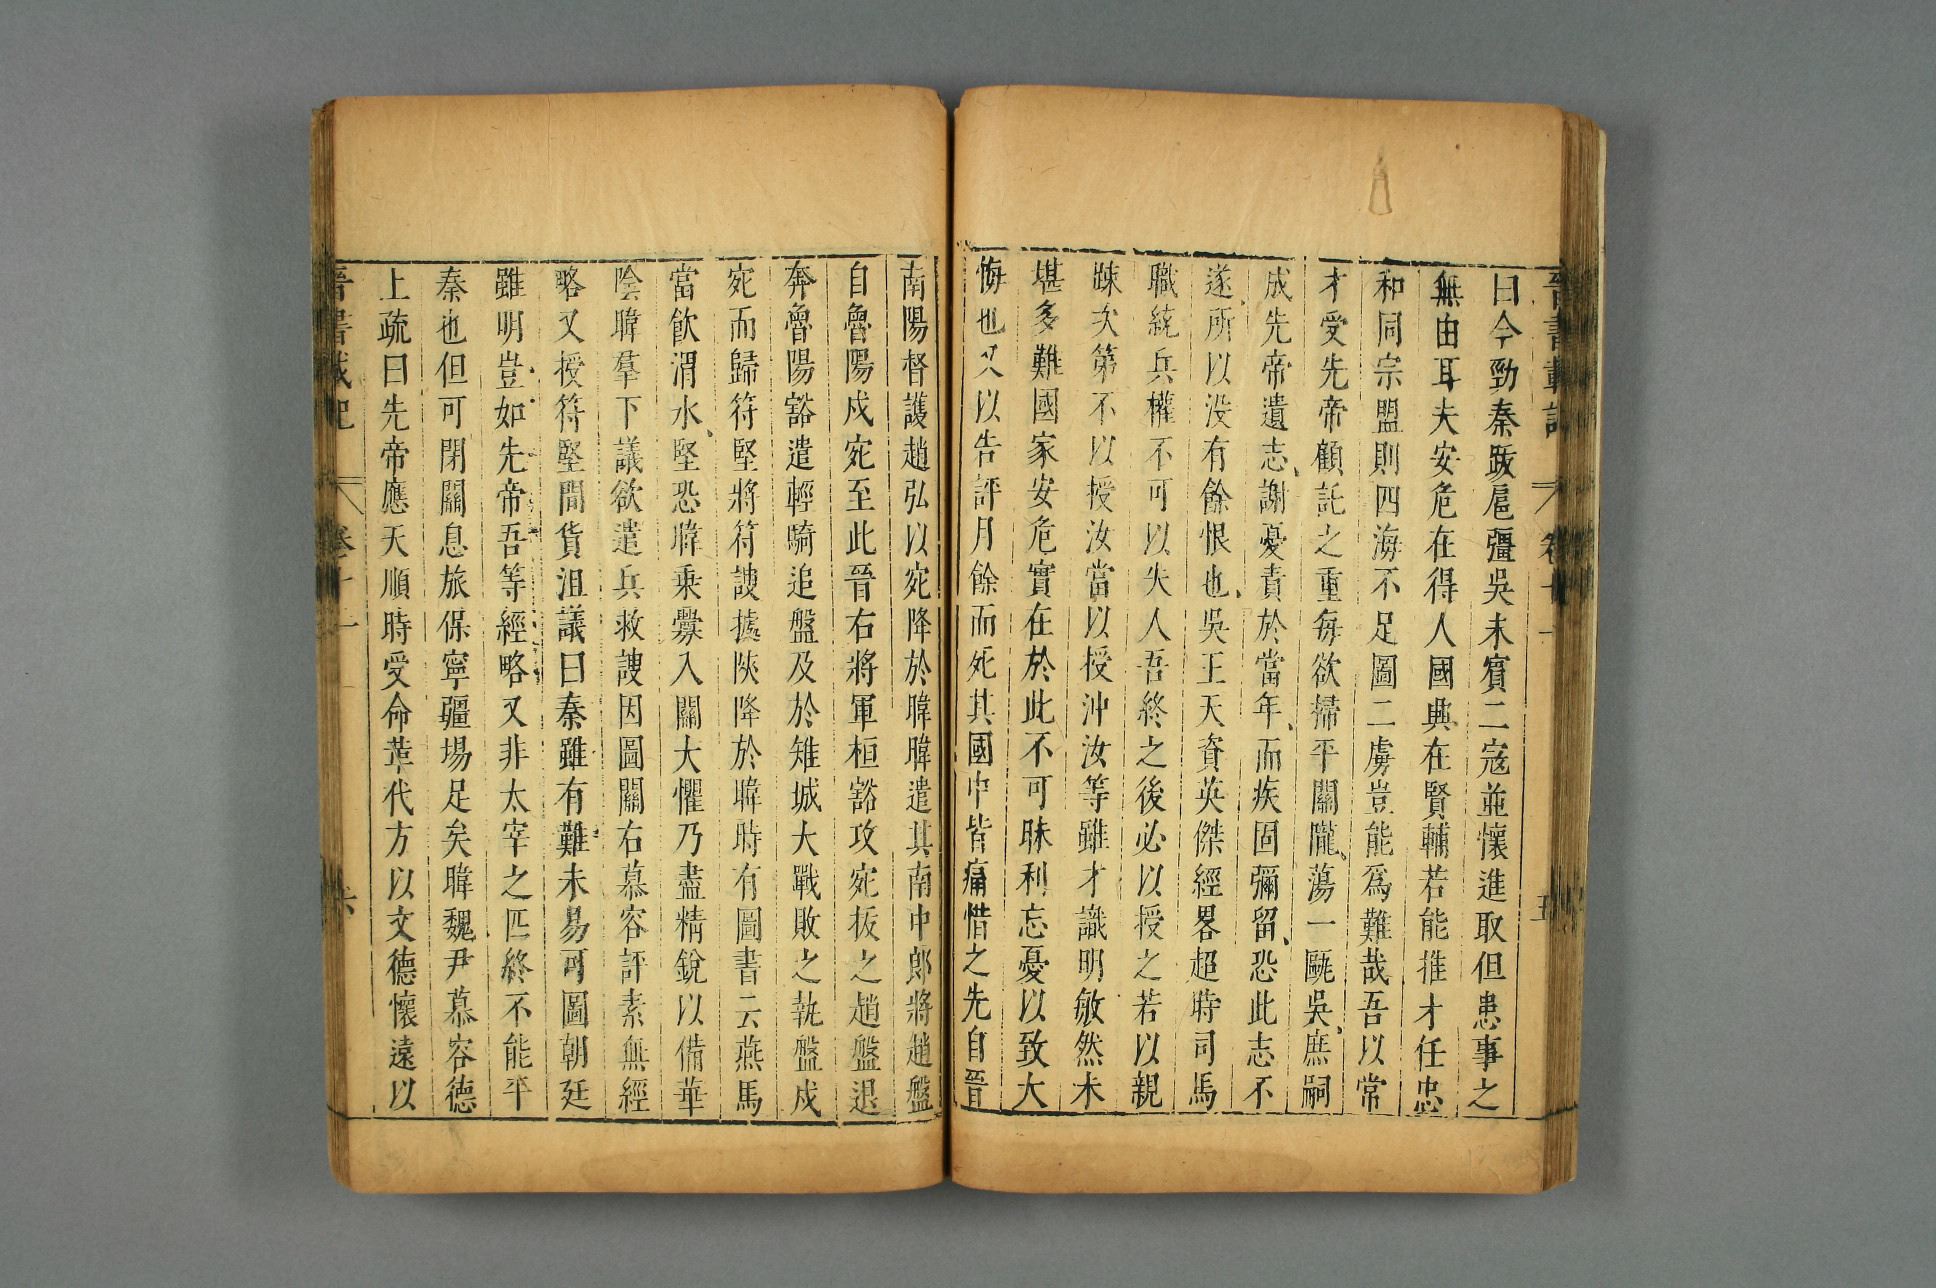 曰今勁秦跋扈彊吳未賓二寇並懷進取但患事之
無由耳夫安危在得人國興在賢輔若能推才任忠
和同宗盟則四海不足圖二虜豈能爲難哉吾以常
才受先帝顧託之重每欲掃平關隴蕩一甌吳庶嗣
成先帝遺志謝憂責於當年而疾固彌留恐此志不
遂所以没有餘恨也吳王天資英傑經畧超時司馬
職統兵權不可以失人吾終之後必以授之若以親
踈次第不以授汝當以授沖汝等雖才識明敏然未
堪多難國家安危實在於此不可昧利忘憂以致大
悔也又以告評月餘而死其國中皆痛惜之先自晉
南陽督護趙弘以宛降於暐暐遣其南中郎將趙盤
自魯陽戍宛至此晉右將軍桓豁攻宛拔之趙盤退
奔魯陽豁遣輕騎追盤及於雉城大戰敗之執盤戍
宛而歸符堅將符謏據陝降於暐時有圖書云燕馬
當飲渭水堅恐暐乘釁入關大懼乃盡精銳以備華
陰暐羣下議欲遣兵救謏因圖關右慕容評素無經
略又授符堅間貨沮議曰秦雖有難未易可圖朝廷
雖明豈如先帝吾等經略又非太宰之匹終不能平
秦也但可閉關息旅保寧疆場足矣暐魏尹慕容德
上疏曰先帝應天順時受命革代方以文德懷遠以
晉書載記 卷十一 六